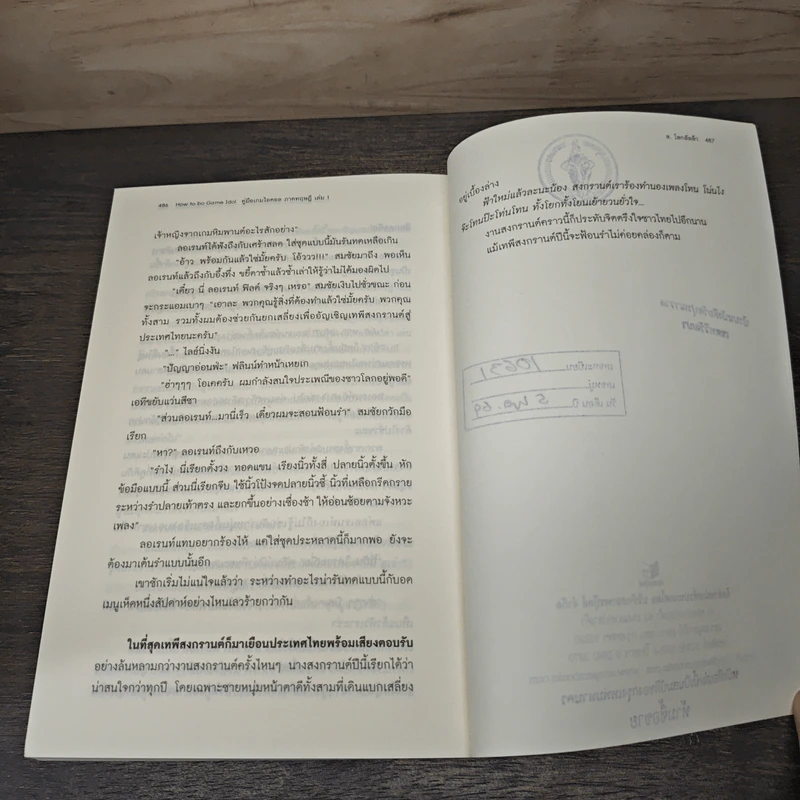 486 How to be Game Idol คู่มือเกมไอดอล ภาคทฤษฎี เล่ม 1
เจ้าหญิงจากเกมหิมพานต์อะไรสักอย่าง"
ลอเรนท์ได้ฟังถึงกับเศร้าสลด ใส่ชุดแบบนี้มันรันทดเหลือเกิน
"อ้าว พร้อมกันแล้วใช่มั้ยครับ โอ้ววว!!!" สมชัยมาถึง พอเห็น
ลอเรนท์แล้วถึงกับอึ้งทึ่ง ขยี้ตาซ้ำแล้วซ้ำเล่าให้รู้ว่าไม่ได้มองผิดไป
"เดี๋ยว นี่ ลอเรนท์ ฟิลด์ จริงๆ เหรอ" สมชัยเงียบไปชั่วขณะ ก่อน
จะกระแอมเบาๆ "เอาละ พวกคุณรู้สิ่งที่ต้องทำแล้วใช่มั้ยครับ พวกคุณ
ทั้งสาม รวมทั้งผมต้องช่วยกันยกเสลี่ยงเพื่ออัญเชิญเทพีสงกรานต์สู่
ประเทศไทยนะครับ"
"..." ไลธ์นิ่งงัน
"ปัญญาอ่อนฟะ" ฟลินน์ทำหน้าเหยเก
"ฮ่าๆๆๆ โอเคครับ ผมกำลังสนใจประเพณีของชาวโลกอยู่พอดี"
เอทีขยับแว่นสีชา
"ส่วนลอเรนท์...มานี่เร็ว เดี๋ยวผมจะสอนฟ้อนรำ" สมชัยกวักมือ
เรียก
"หา?" ลอเรนท์ถึงกับเหวอ
"รำไง นี่เรียกตั้งวง ทอดแขน เรียงนิ้วทั้งสี่ ปลายนิ้วตั้งขึ้น หัก
ข้อมือแบบนี้ ส่วนนี่เรียกจีบ ใช้นิ้วโป้งจดปลายนิ้วชี้ นิ้วที่เหลือกรีดกราย
ระหว่างรำปลายเท้าตรง และยกขึ้นอย่างเชื่องช้า ให้อ่อนช้อยตามจังหวะ
เพลง"
ลอเรนท์แทบอยากร้องไห้ แค่ใส่ชุดประหลาดนี้ก็มากพอ ยังจะ
ต้องมาเต้นรำแบบนั้นอีก
เขาชักเริ่มไม่แน่ใจแล้วว่า ระหว่างทำอะไรน่ารันทดแบบนี้กับอด
เมนูเห็ดหนึ่งสัปดาห์อย่างไหนเลวร้ายกว่ากัน
ในที่สุดเทพีสงกรานต์ก็มาเยือนประเทศไทยพร้อมเสียงตอบรับ
อย่างล้นหลามกว่างานสงกรานต์ครั้งไหนๆ นางสงกรานต์ปีนี้เรียกได้ว่า
น่าสนใจกว่าทุกปี โดยเฉพาะชายหนุ่มหน้าตาดีทั้งสามที่เดินแบกเสลี่ยง
487
อยู่เบื้องล่าง
ฟ้าใหม่แล้วละนะน้อง สงกรานต์เราร้องทำนองเพลงโทน โน่นโง
จ๊ะโทนป๊ะโท่นโทน ทั้งโยกทั้งโยนเย้ายวนยั่วใจ...
งานสงกรานต์คราวนี้ก็ประทับจิตตรึงใจชาวไทยไปอีกนาน
แม้เทพีสงกรานต์ปีนี้จะฟ้อนรำไม่ค่อยคล่องก็ตาม
10631
ห้ามซื้อขาย